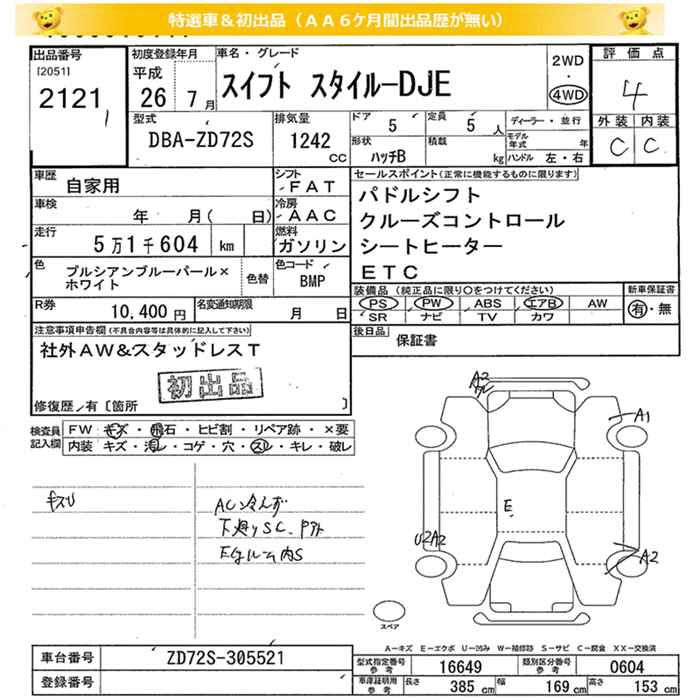 特選車＆初出品（ＡＡ６ケ月間出品歴が無い）
出品番号 初度登録年月 車名・グレード 2WD 評価点
[2051] 平成 ・
2121 26年 7月 スイフト スタイル-DJE 4WD 4
型式 排気量 ドア 5 定員 5人 ディーラー・並行 外装 内装
DBA-ZD72S 1242 CC 形状 ハッチB 積載 kg モデル年式 年 C C
ハンドル 左・右
車歴 自家用 シフト FAT セールスポイント(正常に機能するものに限ります)
車検 年 月( 日) 冷房 AAC パドルシフト
走行 5万1千604 km 燃料 ガソリン クルーズコントロール
シートヒーター
色 ブルシアンブルーパール× 色替 色コード BMP ETC
ホワイト 装備品(純正品に限り○をつけてください) 新車保証書
R券 10,400円 名変通知期限 月 日 PS PW ABS エアB AW 有・無
SR ナビ TV カワ
注意事項申告欄(不具合内容等は具体的に記入して下さい) 後日品 保証書
社外AW&スタッドレスT
初出品
修復歴/有〔箇所 〕
検査員 FW キズ・飛石・ヒビ割・リペア跡・×要
記入欄 内装 キズ・汚レ・コゲ・穴・スレ・キレ・破レ
A2
A1
キズU AC冷えず E
下廻りSC
Eルーム内S
U2A2 A2
スペア
A－キズ E－エクボ U－凹み W－補修跡 S－サビ C－腐食 XX－交換済
車台番号 ZD72S-305521 型式指定番号参考 16649 類別区分番号参考 0604
登録番号 車庫証明用参考 長さ 385cm 幅 169cm 高さ 153cm